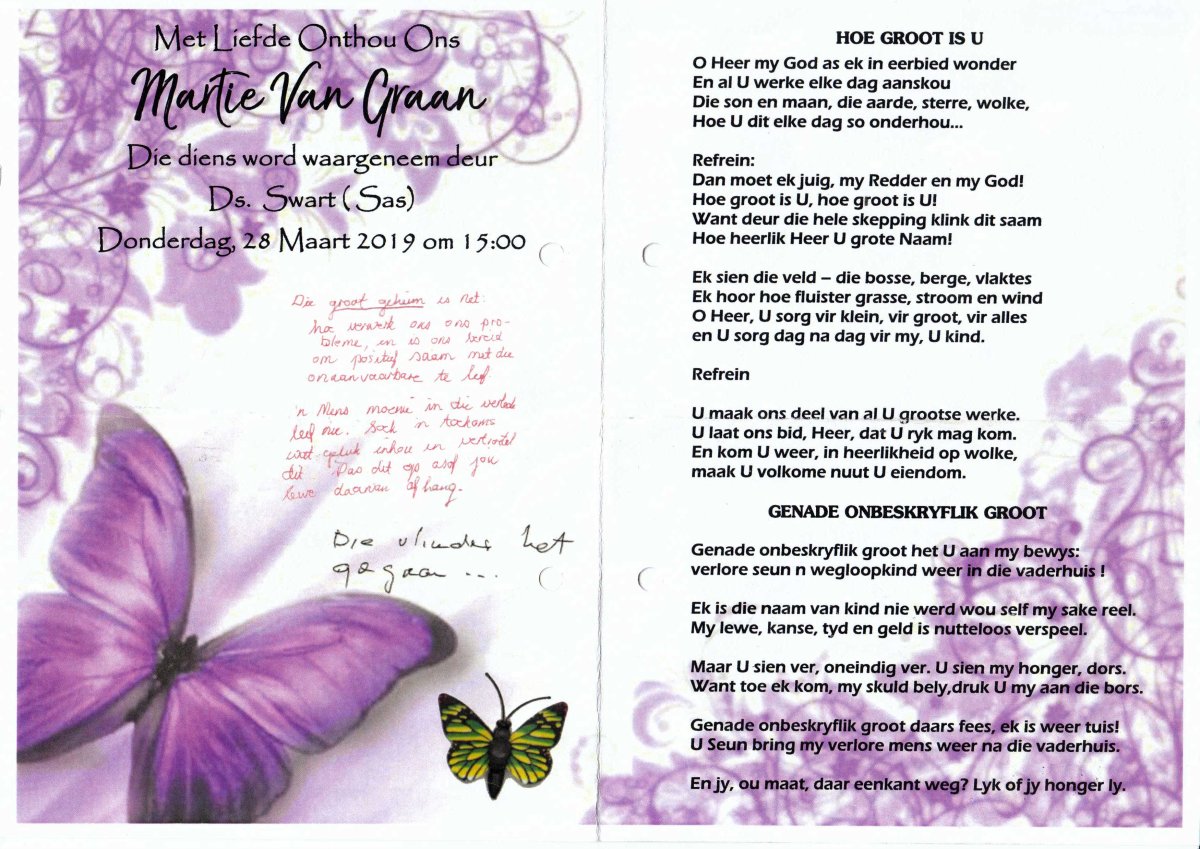 Met Liefde Onthou Ons
Martie Van Graan
Die diens word waargeneem deur
Ds. Swart (Sas)
Donderdag, 28 Maart 2019 om 15:00
Die groot geheim is net:
hoe verwerk ons ons pro-
bleme, en is ons bereid
om positief saam met die
onaanvaarbare te leef.
'n Mens moenie in die verlede
leef nie. Soek 'n toekoms
wat geluk inhou en
dit. Pas dit op asof jou
lewe daarvan afhang.
Die vlinder het
gegaan ...
HOE GROOT IS U
O Heer my God as ek in eerbied wonder
En al U werke elke dag aanskou
Die son en maan, die aarde, sterre, wolke,
Hoe U dit elke dag so onderhou...
Refrein:
Dan moet ek juig, my Redder en my God!
Hoe groot is U, hoe groot is U!
Want deur die hele skepping klink dit saam
Hoe heerlik Heer U grote Naam!
Ek sien die veld – die bosse, berge, vlaktes
Ek hoor hoe fluister grasse, stroom en wind
O Heer, U sorg vir klein, vir groot, vir alles
en U sorg dag na dag vir my, U kind.
Refrein
U maak ons deel van al U grootse werke.
U laat ons bid, Heer, dat U ryk mag kom.
En kom U weer, in heerlikheid op wolke,
maak U volkome nuut U eiendom.
GENADE ONBESKRYFLIK GROOT
Genade onbeskryflik groot het U aan my bewys:
verlore seun n wegloopkind weer in die vaderhuis !
Ek is die naam van kind nie werd wou self my sake reel.
My lewe, kanse, tyd en geld is nutteloos verspeel.
Maar U sien ver, oneindig ver. U sien my honger, dors.
Want toe ek kom, my skuld bely,druk U my aan die bors.
Genade onbeskryflik groot daars fees, ek is weer tuis!
U Seun bring my verlore mens weer na die vaderhuis.
En jy, ou maat, daar eenkant weg? Lyk of jy honger ly.